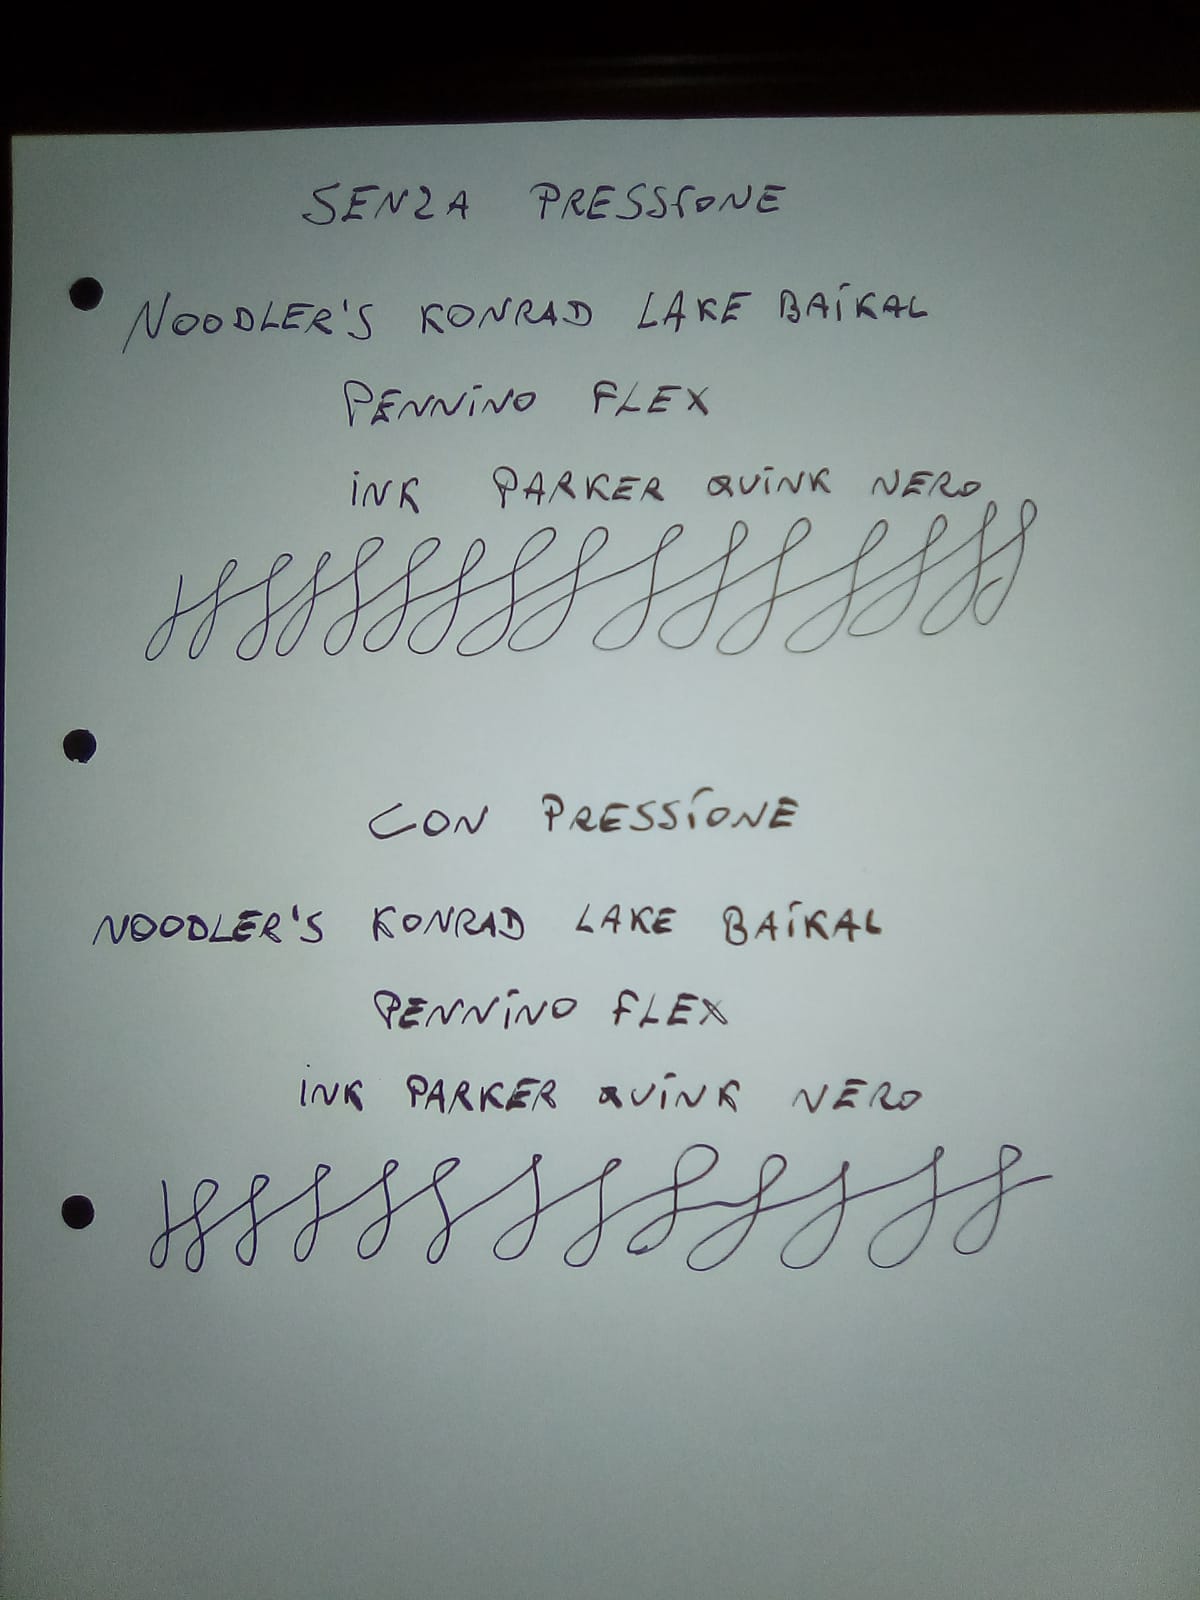 SENZA PRESSIONE
NOODLER'S KONRAD LAKE BAIKAL
PENNINO FLEX
INK PARKER QUINK NERO
CON PRESSIONE
NOODLER'S KONRAD LAKE BAIKAL
PENNINO FLEX
INK PARKER QUINK NERO